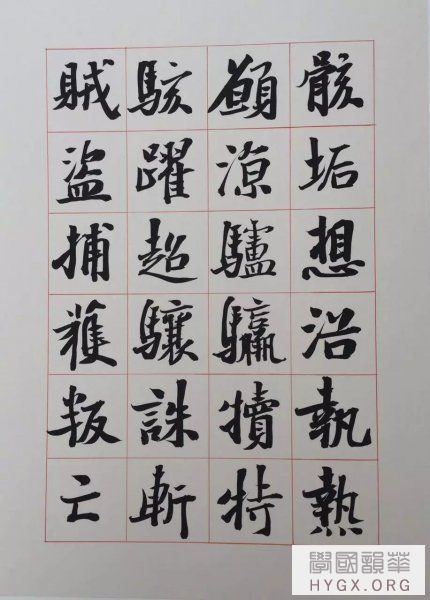 骸垢想浴執熱
願涼驢驘犢特
駭躍超驤誅斬
賊盜捕獲叛亡
學國韻華
HYGX.ORG